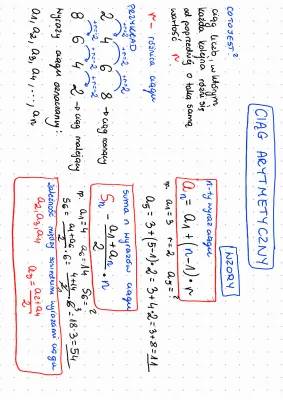 CIĄG ARYTMETYCZNY
CO TO JEST?
ciąg liczb, w którym
każda kolejna różni się
od poprzedniej o taką samą
wartość r.
r - różnica ciągu
PRZYKŁAD
+r=2 +r=2 +r=2
2 4 6 8 → ciąg rosnący
+r=-2 +r=-2 +r=-2
8 6 4 2 → ciąg malejący
wyrazy ciągu oznaczamy:
a₁, a₂, a₃, a₄, ..., aₙ
WZORY
n-ty wyraz ciągu
aₙ = a₁ + (n-1) · r
np. a₁ = 3 r = 2 a₅ = ?
a₅ = 3 + (5-1) · 2 = 3 + 4 · 2 = 3 + 8 = 11
suma n wyrazów ciągu
Sₙ = a₁ + aₙ / 2 · n
np. a₁ = 4 a₆ = 14 S₆ = ?
S₆ = a₁ + a₆ / 2 · 6 = 4 + 14 / 2 · 6 = 18 · 3 = 54
zależność między sąsiednimi wyrazami ciągu
a₂, a₃, a₄
a₃ = a₂ + a₄ / 2